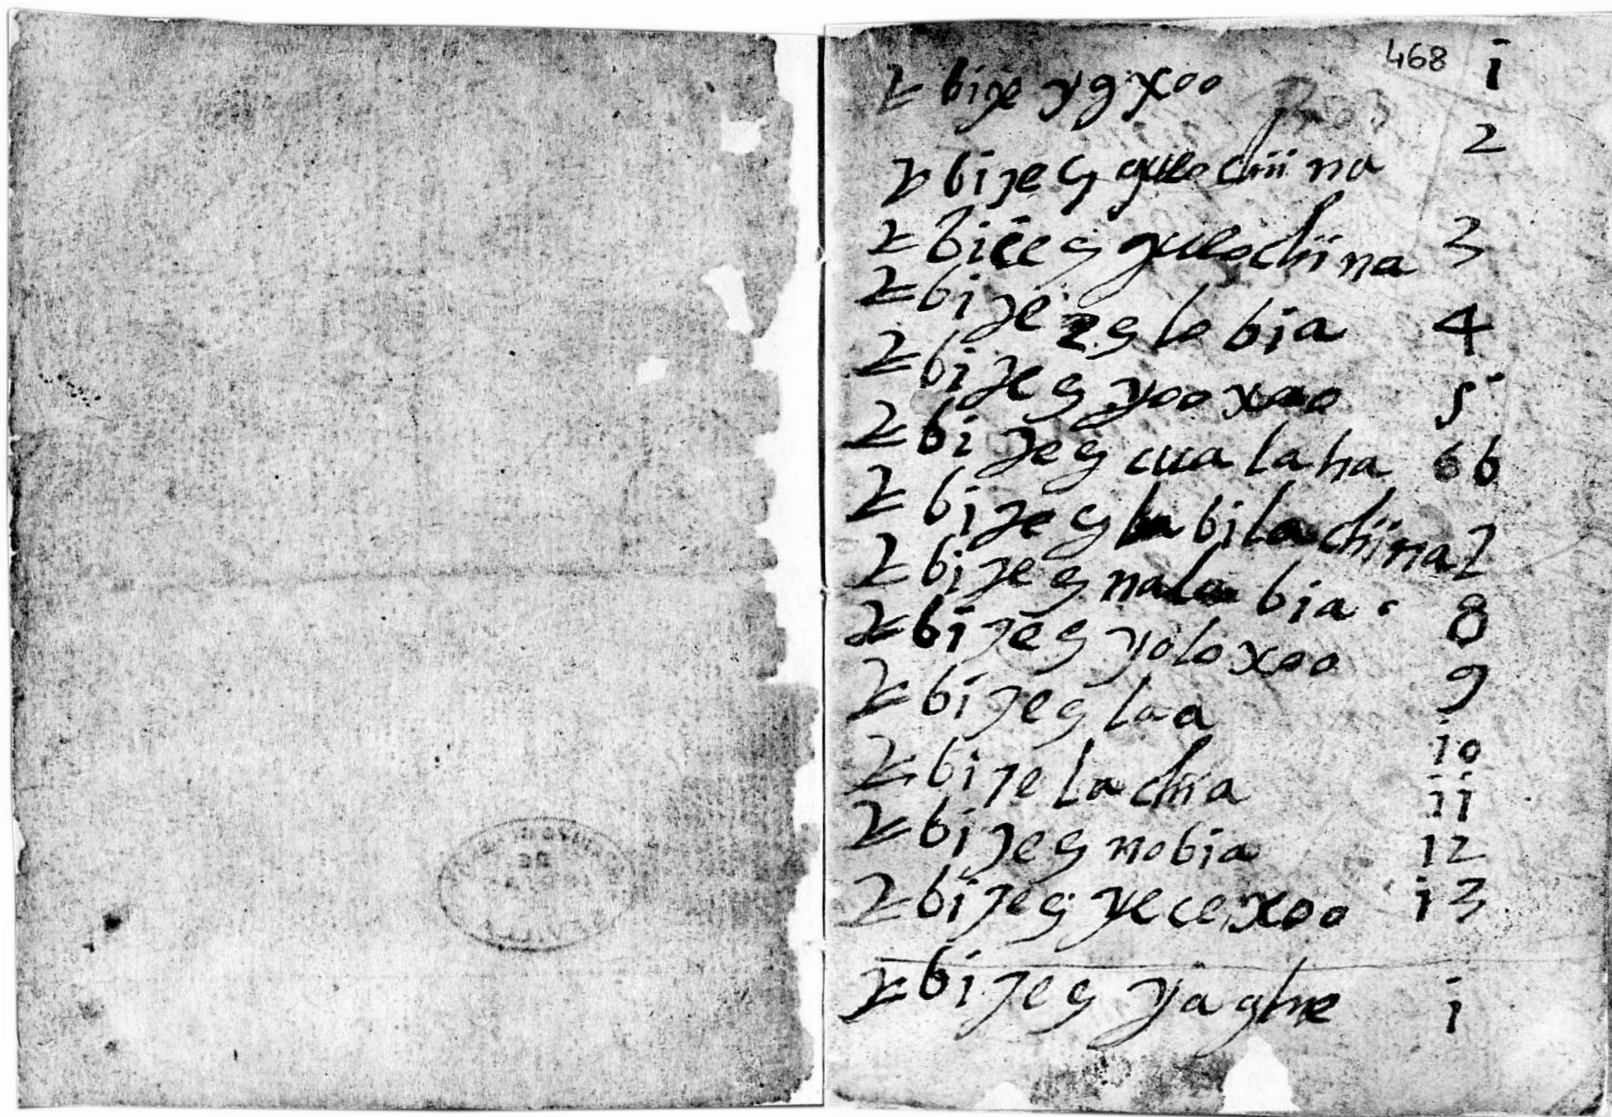 468
bije yg xoo 1
bije g gueochiina 2
bice g gueochiina 3
bije g lo bia 4
bije g yoo xoo 5
bije g cua la ha 6 6
bije g la bi la chiina 7
bije g nala bia 8
bije g yolo xoo 9
bije g laa 10
bije la chia 11
bije g no bia 12
bije g yece xoo 13
bije g yaghe 1
DE